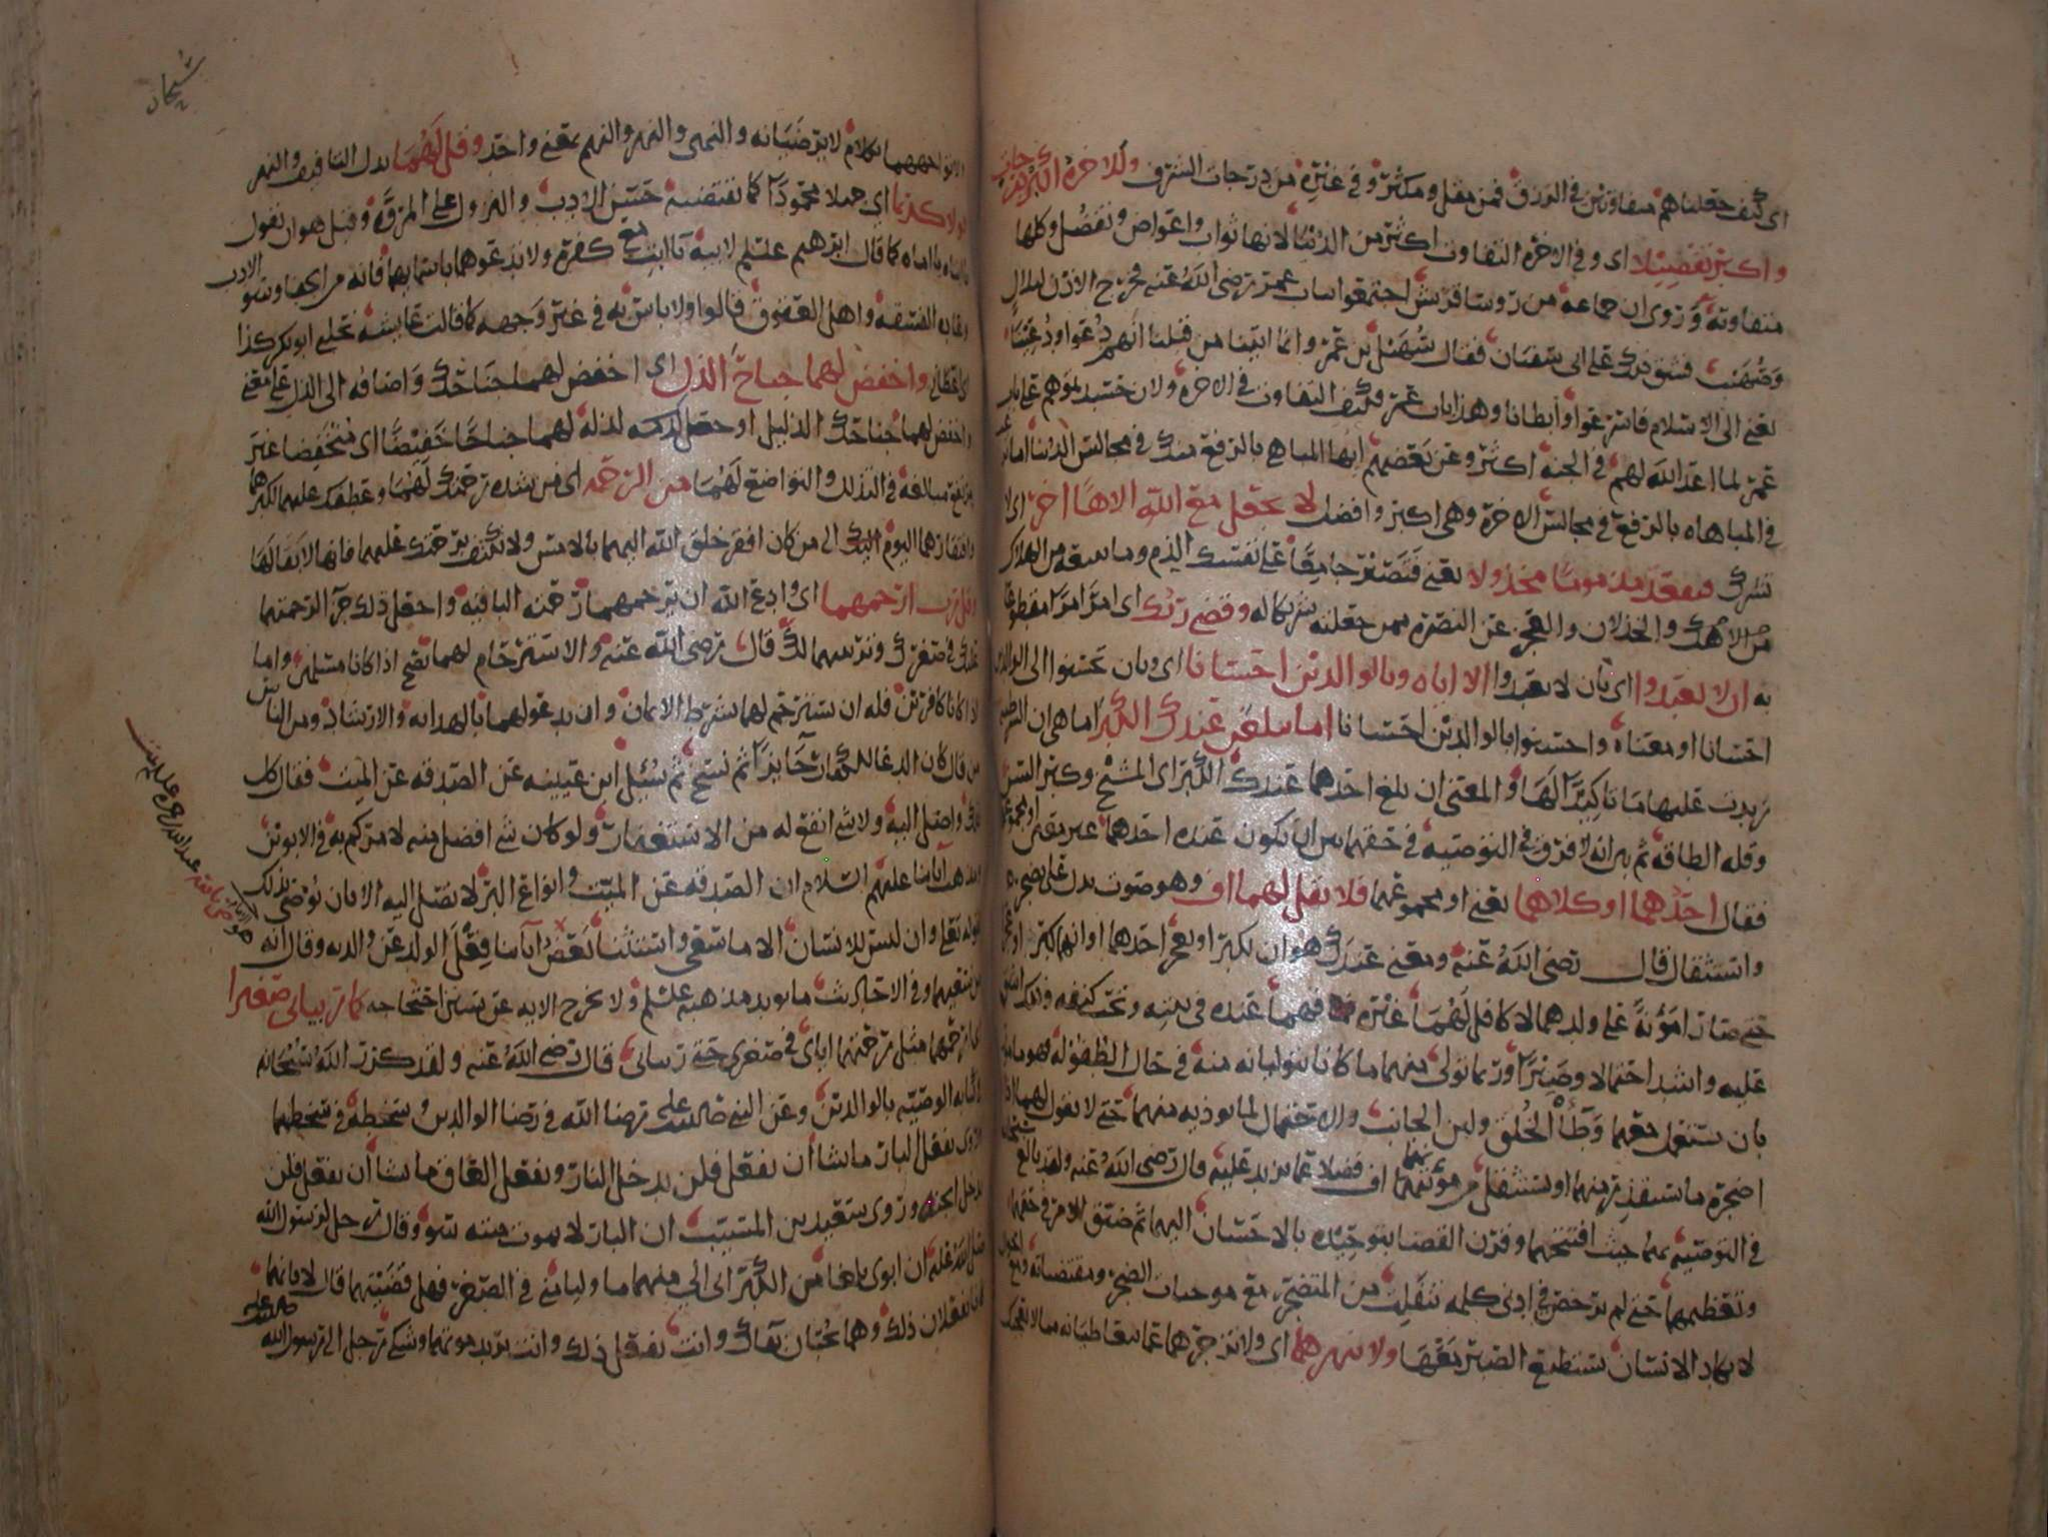 اي كيف جعلناهم متفاوتين في الرزق فمن مقل ومكثر وفي غيره من درجات الشرف وللاخرة اكبر درجات
واكبر تفضيلا اي وفي الاخرة التفاوت اكثر من الدنيا لانها ثواب واعواض وتفضل وكلها
متفاوتة وروي ان جماعة من روسا قريش اجتمعوا بباب عمر رضي الله عنه فخرج الاذن لبلال
وصهيب فشق ذلك على ابي سفين فقال سهيل بن عمرو وانما اتينا من قبلنا انهم دعوا ودعينا
يعني الى الاسلام فاسرعوا وابطانا وهذا باب عمر فكيف التفاوت في الاخرة ولان حسدتموهم على باب
عمر لما اعد الله لهم في الجنة اكثر وعن بعضهم ايها المباهي بالرفعة منك في مجالس الدنيا اما ترغب
في المباهاه بالرفعة في مجالس الاخرة وهي اكبر وافضل لا تجعل مع الله الاها اخر اي لا
تشرك فتقعد مذموما مخذولا يعني فتصير جامعا على نفسك الذم وما يتبعه من الهلاك
من الاهك والخذلان والعجز عن النصرة ممن جعلته شريكا له وقضى ربك اي امر امرا مقطوعا
به ان لا تعبدوا اي بان لا تعبدوا الا اياه وبالوالدين احسانا اي وبان تحسنوا الى الوالدين
احسانا او معناه واحسنوا بالوالدين احسانا اما يبلغن عندك الكبر اما هي ان الشرطية
زيدت عليها ما تاكيدا لها والمعنى ان بلغ احدهما عندك الكبر اي المشيخ وكبر السن
وقلة الطاقة ثم بين انه لا فرق في التوصية في حقهما بين ان يكون عنده احدهما على معنى او مجموعهما
فقال احدهما او كلاهما يعني او مجموعهما فلا تقل لهما اف وهو صوت يدل على تضجر
واستثقال قال رضي الله عنه ومعنى عندك هو ان يكبرا ويعجز احدهما او انهما كبرا وعجزا
حتى صارا مؤنة على ولدهما لا كافل لهما غيره فهما عنده في بيته وتحت كنفه وذلك اشق
عليه واشد احتمالا وصبرا وربما تولى منهما ما كانا يتوليانه منه في حال الطفولة فهو مامور
بان يستعمل معهما وطأ الخلق ولين الجانب والاحتمال لما يوذيه منهما حتى لا يقول لهما اذا
اضجره ما يستقذر منهما او يستثقل من مؤنتهما اف فضلا عما يزيد عليه قال رضي الله عنه ولقد بالغ سبحانه
في التوصية بهما حيث افتتحهما وقرن القضا بتوحيده بالاحسان اليهما ثم ضيق الامر في حقهما
وتعظيمهما حتى لم يرخص في ادنى كلمة تنفلت من المتضجر مع موجبات الضجر ومقتضياته ومع احوال
لا يكاد الانسان يستطيع الصبر معها ولا تنهرهما اي ولا تزجرهما عما يتعاطيانه مما لا يعجبك
شيحان
ولا تواجههما بكلام لا يرضيانه والنهي والنهر والنهم بمعنى واحد وقل لهما بدل التافيف والنهر
قولا كريما اي جميلا محمودا كما تقتضيه حسن الادب والنزول على المروة وقيل هو ان تقول
يا ابتاه يا اماه كما قال ابرهيم عليه السلم لابيه يا ابت مع كفره ولا تدعوهما باسمايهما فانه من الجفا وسو الادب
وعادة الفسقة واهل الفسوق قالوا ولا باس به في غير وجهه كما قالت عايشة نحلني ابو بكر كذا
اي اعطاني واخفض لهما جناح الذل اي اخفض لهما جناحك واضافه الى الذل على معنى
واخفض لهما جناحك الذليل او جعل لذله لهما جناحا خفيضا اي منخفضا غير
مرتفع مبالغة في التذلل والتواضع لهما من الرحمة اي من شدة رحمتك لهما وعطفك عليهما لكبرهما
وافتقارهما اليوم اليك الى من كان افقر خلق الله اليهما بالامس ولا تكتف برحمتك عليهما فانها لا بقا لها
وقل رب ارحمهما اي وادع الله ان يرحمهما رحمته الباقية واجعل ذلك جزآ لرحمتهما
عليك في صغرك وتربيتهما لك قال رضي الله عنه والاسترحام لهما يصح اذا كانا مسلمين واما
اذا كانا كافرين فله ان يسترحم لهما بشرط الايمان وان يدعو لهما بالهداية والارشاد ومن الناس
من قال كان الدعا للكفار جايزا ثم نسخ ثم سئل ابن عيينه عن الصدقة عن الميت فقال كل
ذلك واصل اليه ولا شي انفع له من الاستغفار ولو كان شي افضل منه لامركم به في الابوين
ومذهب آبائنا عليهم السلام ان الصدقة عن الميت وانواع البر لا تصل اليه الا بان يوصي بذلك
لقوله تعلى وان ليس للانسان الا ما سعى واستثنى بعض ابائنا فعل الولد عن والديه وقال انه
من سعيهما وفي الاحاديث ما يويد مذهبه عليه السلم ولا نخرج الايه عن سنن احتجاجه كما ربياني صغيرا
اي ارحمهما مثل رحمتهما اياي في صغري حتى ربياني قال رضي الله عنه ولقد كرر الله سبحانه
في كتابه الوصية بالوالدين وعن النبي صلى الله عليه رضا الله في رضا الوالدين وسخطه في سخطهما
وروي يفعل البار ما يشا ان يفعل فلن يدخل النار ويفعل العاق ما يشا ان يفعل فلن
يدخل الجنه وروى سعيد بن المسيب ان البار لا يموت ميتة سو وقال رجل لرسول الله
صلى الله عليه ان ابوي بلغا من الكبر اني الي منهما ما وليا مني في الصغر فهل قضيتهما قال لا فانهما
كانا يفعلان ذلك وهما يحبان بقاك وانت تفعل ذلك وانت تريد موتهما وشكى رجل الى رسول الله